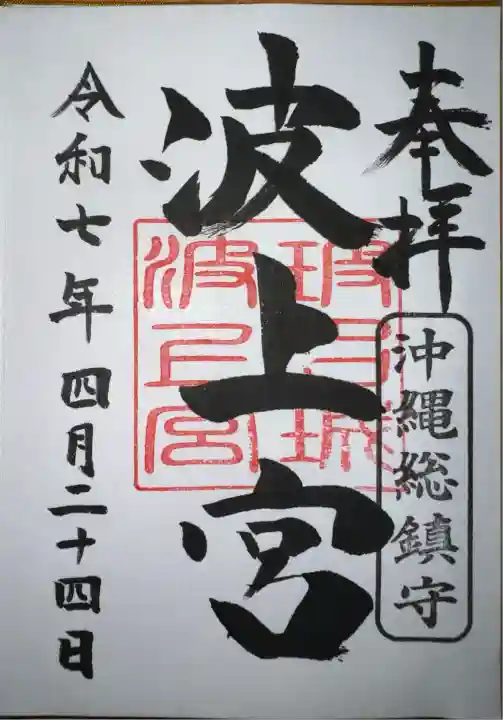 奉拝
沖縄総鎮守
波上宮
令和七年四月二十四日